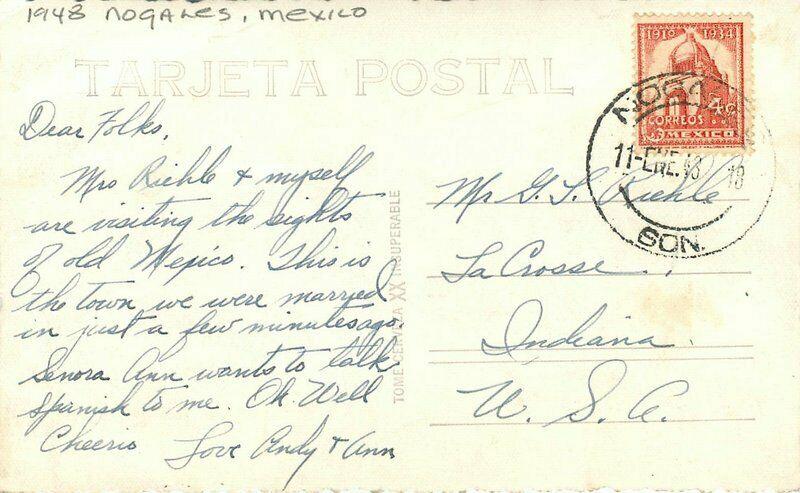 1948 NOGALES, MEXICO
TARJETA POSTAL
1910 1934
4¢
CORREOS
MEXICO
NOGALES
11-ENE.48
18
SON.
Dear Folks,
Mrs Riehle & myself
are visiting the sights
of old Mexico. This is
the town we were married
in just a few minutes ago
Senora Ann wants to talk
Spanish to me. Oh Well
Cheerio Love Andy & Ann
TOME CERVEZA XX INSUPERABLE
Mr G. L. Riehle
La Crosse,
Indiana
U. S. A.